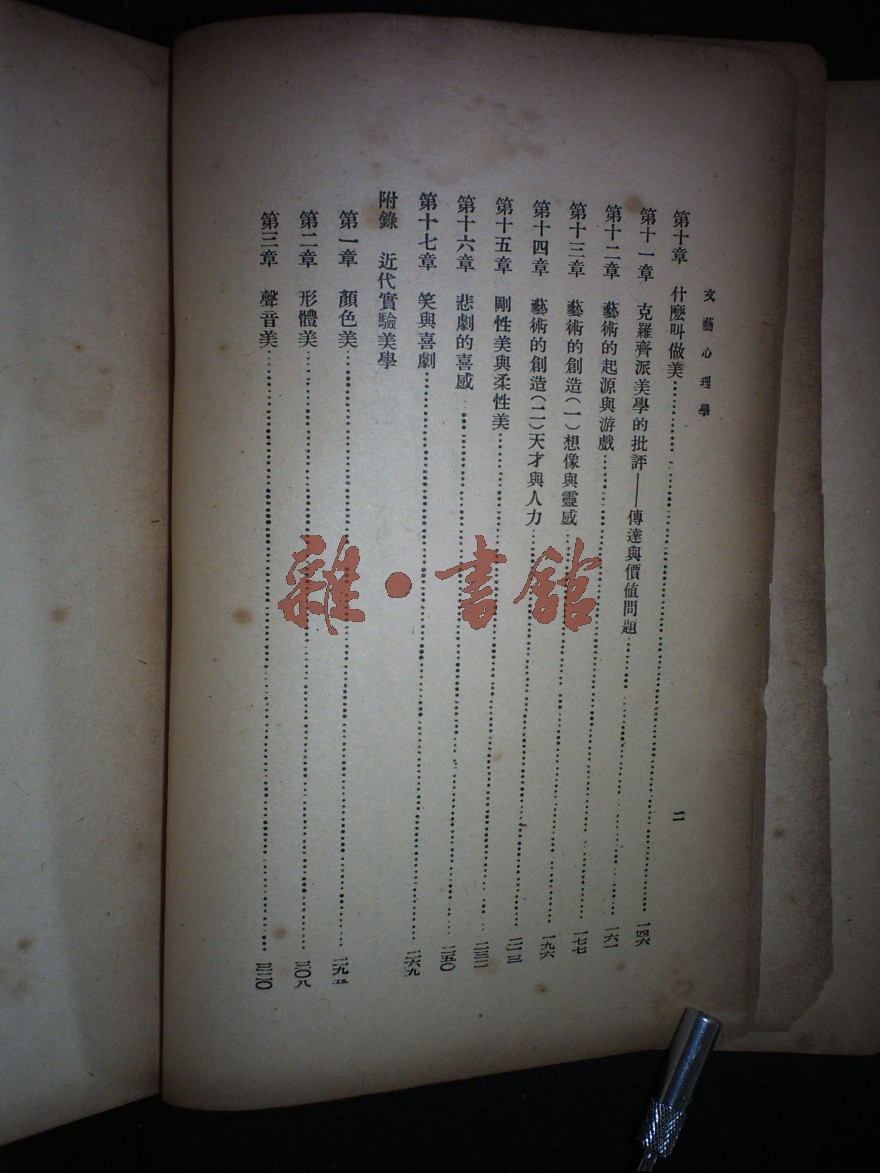 文藝心理學
二
第十章 什麼叫做美……一四六
第十一章 克羅齊派美學的批評——傳達與價值問題……一六一
第十二章 藝術的起源與游戲……一七七
第十三章 藝術的創造(一)想像與靈感……一九六
第十四章 藝術的創造(二)天才與人力……二一三
第十五章 剛性美與柔性美……二三二
第十六章 悲劇的喜感……二五〇
第十七章 笑與喜劇……二六九
附錄 近代實驗美學
第一章 顏色美……二九五
第二章 形體美……三〇八
第三章 聲音美……三二〇
雜·書館